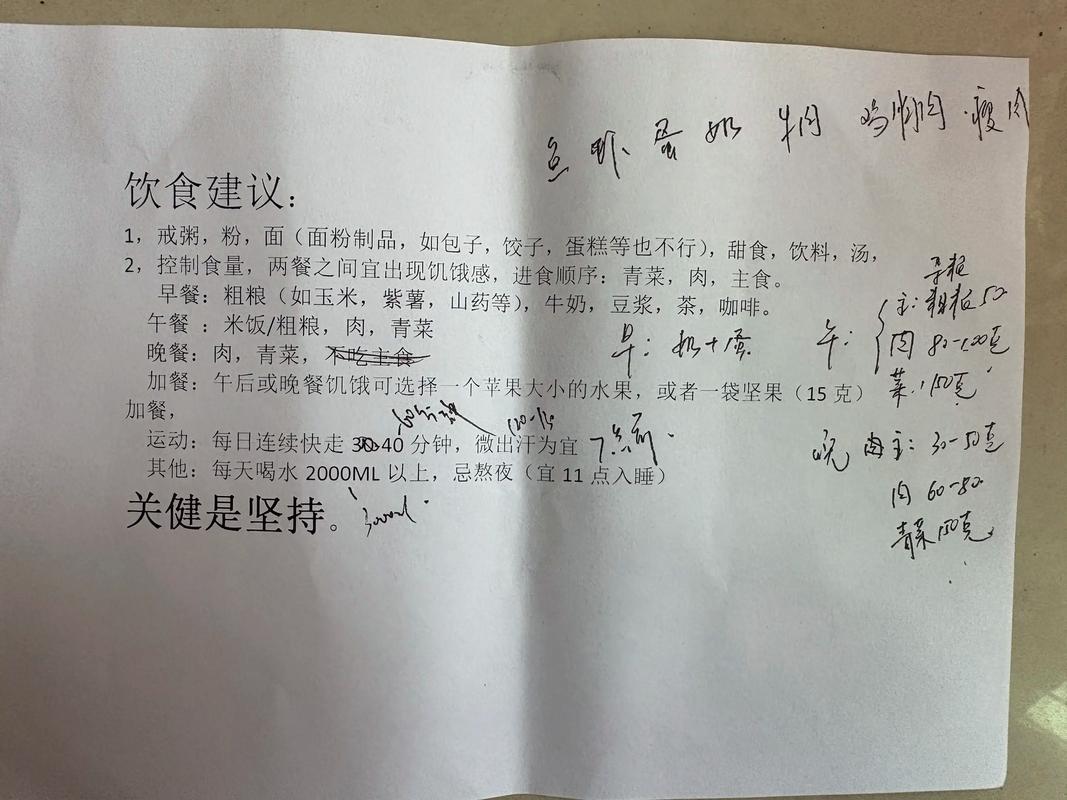 鱼 虾 蛋 奶 牛肉 鸡胸肉 瘦肉
饮食建议：
1，戒粥，粉，面（面粉制品，如包子，饺子，蛋糕等也不行），甜食，饮料，汤，
2，控制食量，两餐之间宜出现饥饿感，进食顺序：青菜，肉，主食。
早餐：粗粮（如玉米，紫薯，山药等），牛奶，豆浆，茶，咖啡。
杂粮
主：粗粮50
午餐 ：米饭/粗粮，肉，青菜
早：奶+蛋
午：
肉 80-100克
晚餐：肉，青菜，不吃主食
菜：150克
加餐：午后或晚餐饥饿可选择一个苹果大小的水果，或者一袋坚果（15 克）
加餐，
60分钟
运动：每日连续快走 30-40 分钟，微出汗为宜
7点前
晚
主：30-50克
其他：每天喝水 2000ML 以上，忌熬夜（宜 11 点入睡）
肉 60-80
关健是坚持。
3000ml
青菜150克